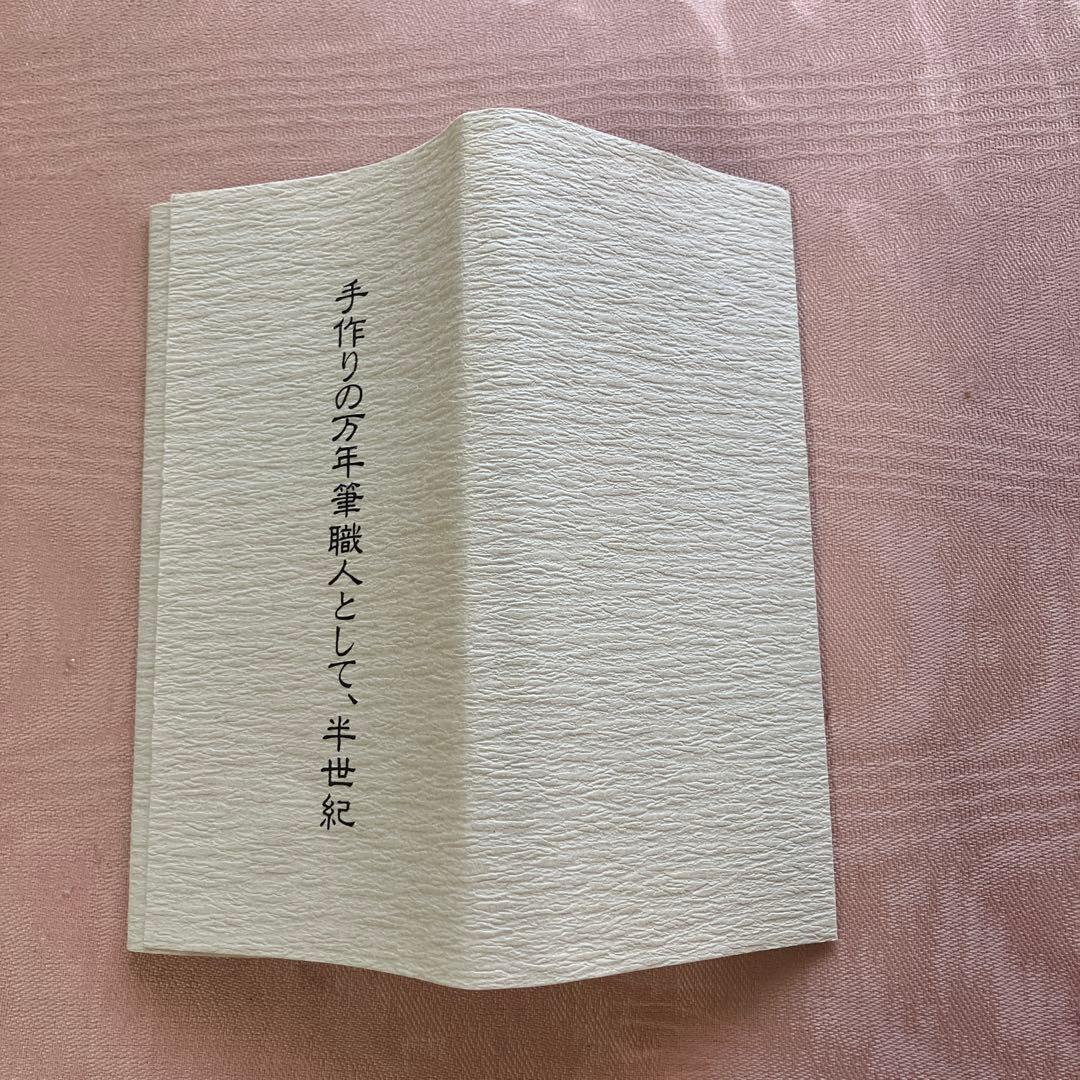 手作りの万年筆職人として、半世紀